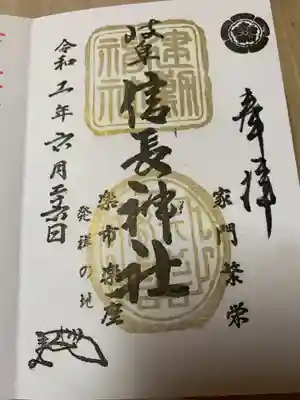 奉拝
家門繁栄
建勲
神社
岐阜信長神社
楽市楽座
発祥の地
令和五年六月